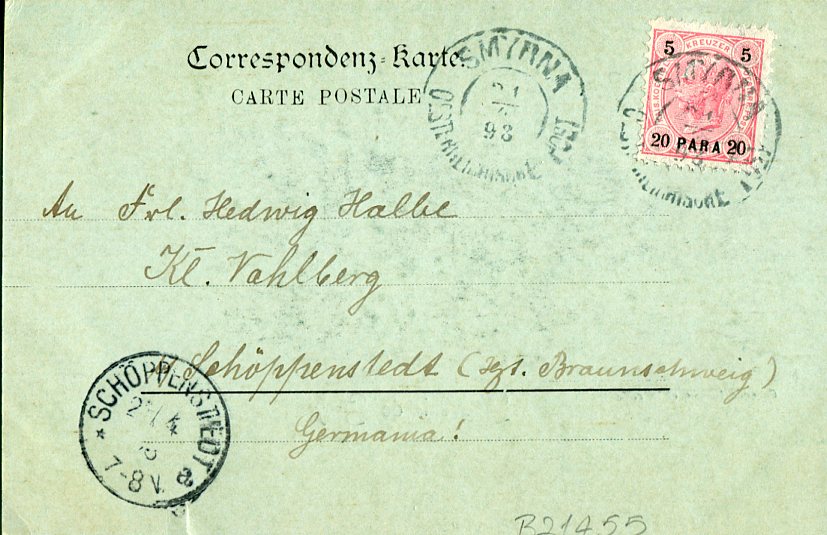 Correspondenz-Karte.
CARTE POSTALE
SMYRNA
98
OESTERREICHISCHE POST
5 KREUZER 5
20 PARA 20
SMYRNA
An Frl. Hedwig Halbe
Kl. Vahlberg
Schöppenstedt (Hzt. Braunschweig)
Germania!
* SCHÖPPENSTEDT *
7-8 V.
B21455